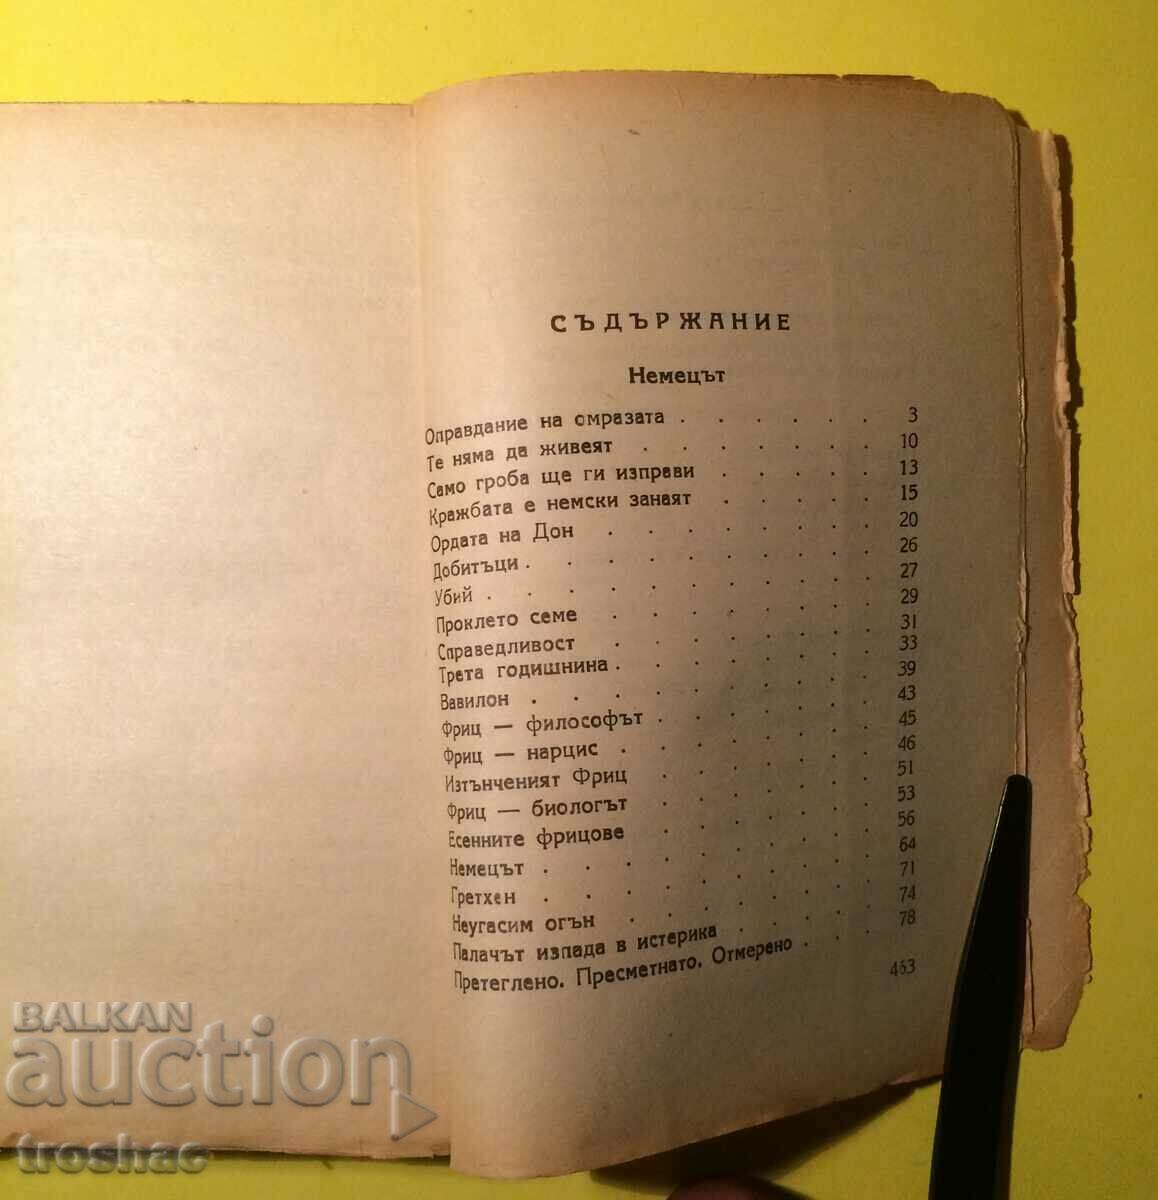 СЪДЪРЖАНИЕ
Немецът
Оправдание на омразата . . . . . . 3
Те няма да живеят . . . . . . . 10
Само гроба ще ги изправи . . . . . 13
Кражбата е немски занаят . . . . . 15
Ордата на Дон . . . . . . . 20
Добитъци . . . . . . . . . 26
Убий . . . . . . . . . . 27
Проклето семе . . . . . . . 29
Справедливост . . . . . . . 31
Трета годишнина . . . . . . . 33
Вавилон . . . . . . . . . 39
Фриц — философът . . . . . . 43
Фриц — нарцис . . . . . . . 45
Изтънченият Фриц . . . . . . 46
Фриц — биологът . . . . . . 51
Есенните фрицове . . . . . . 53
Немецът . . . . . . . . . 56
Гретхен . . . . . . . . . 64
Неугасим огън . . . . . . . 71
Палачът изпада в истерика . . . . 74
Претеглено. Пресметнато. Отмерено . . . 78
463
BALKAN
auction
troshac